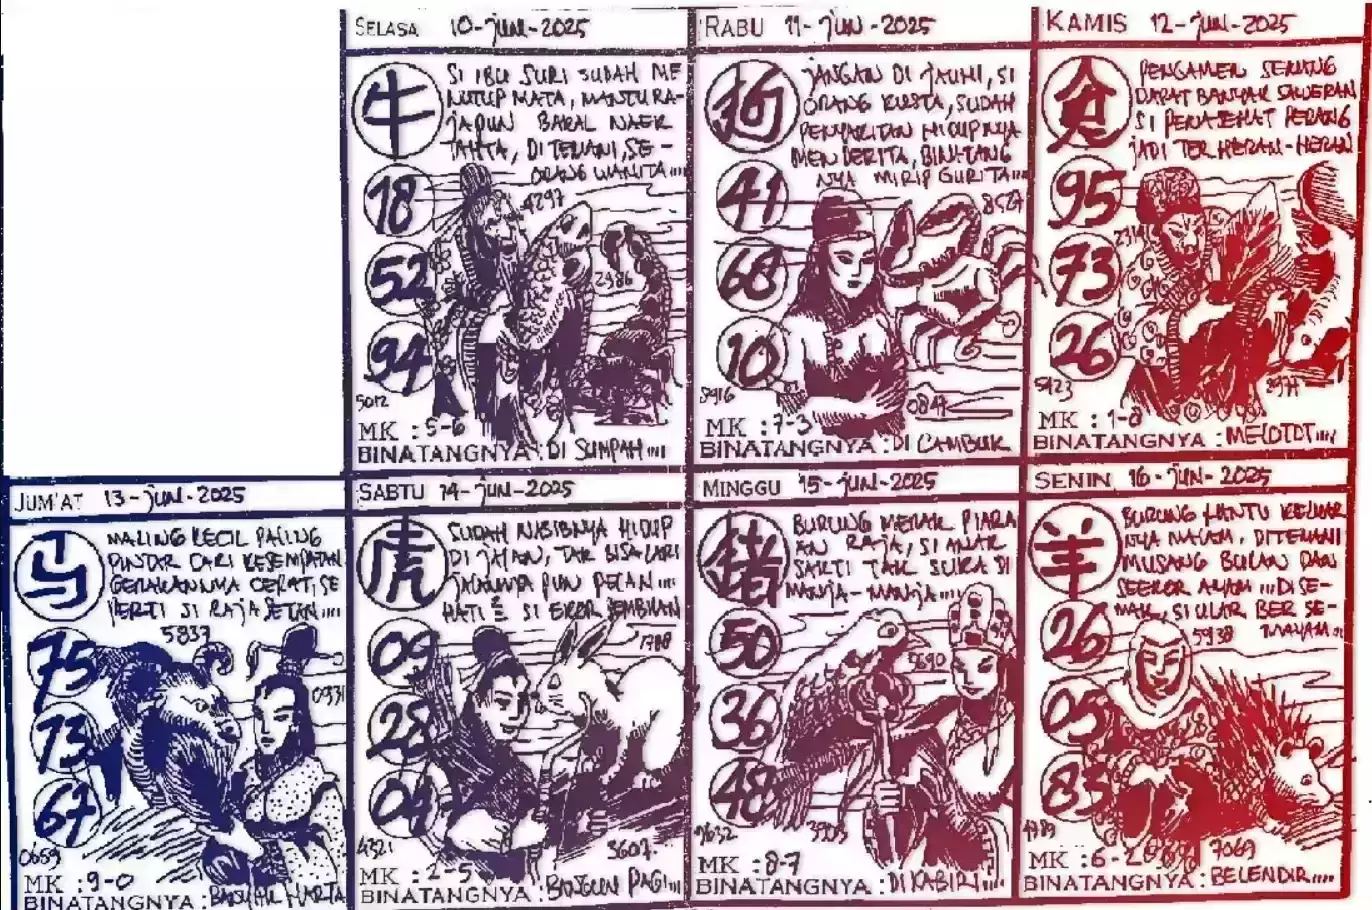 SELASA 10-JUNI-2025
牛
SI IBU SURI SUDAH ME
NUTUP MATA, MANTU RA-
JAPUN BAKAL NAEK
TAHTA, DITEMANI, SE-
ORANG WANITA....
18
4297
52
2386
94
5012
MK : 5-6
BINATANGNYA : DI SUMPAH....
RABU 11-JUN-2025
狗
JANGAN DI JAUHI, SI
ORANG KUSTA, SUDAH
PENYAKITAN HIDUPNYA
MENDERITA, BINATANG
NYA MIRIP GURITA....
41
8527
68
10
3916
0847
MK : 7-3
BINATANGNYA : DI CAMBUK
KAMIS 12-JUN-2025
PENGAMEN SENANG
DAPAT BANYAK SAWERAN
SI PENASEHAT PERANG
JADI TERHERAN-HERAN
95
73
26
MK : 1-8
BINATANGNYA : MELOTOT....
JUM'AT 13-JUN-2025
马
MALING KECIL PALING
PINTAR CARI KESEMPATAN
GERAKANNYA CEPAT, SE
PERTI SI RAJA SETAN....
5837
75
0931
73
67
0659
MK : 9-0
BINATANGNYA : BANYAK HARTA
SABTU 14-JUN-2025
虎
SUDAH NASIBNYA HIDUP
DI JALAN, TAK BISA LARI
JALANNYA PUN PELAN....
HATI2 SI EKOR SEMBILAN
1788
09
28
04
4321
3607
MK : 2-5
BINATANGNYA : BANGUN PAGI....
MINGGU 15-JUN-2025
猪
BURUNG MERAK PIARA
AN RAJA, SI ANAK
SAKTI TAK SUKA DI
MANJA-MANJA....
50
5690
36
48
9632
3909
MK : 8-7
BINATANGNYA : DI KABIRI....
SENIN 16-JUN-2025
羊
BURUNG HANTU KELUAR
NYA MALAM, DITEMANI
MUSANG BULAN DAN
SEEKOR AYAM....DI SE-
MAK, SI ULAR BERSE-
MAYAM....
26
5938
05
83
4989
7069
MK : 6-2
BINATANGNYA : BELENDIR....